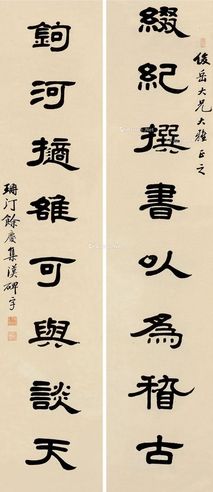 綴紀撰書以為稽古
俊岳大兄大雅正之
鉤河擿雒可與談天
珊汀餘慶集漢碑字